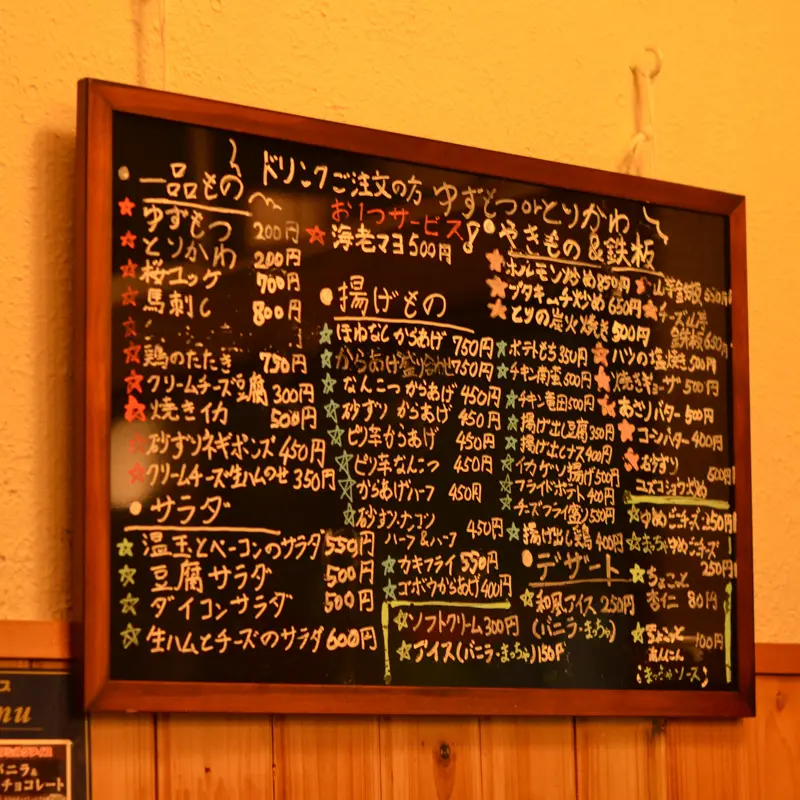 ドリンクご注文の方 ゆずもつ or とりかわ
お1つサービス!
・一品もの
☆ゆずもつ 200円
☆とりかわ 200円
☆桜ユッケ 700円
☆馬刺し 800円
☆鶏のたたき 750円
☆クリームチーズ豆腐 300円
☆焼きイカ 500円
☆砂ずりネギポンズ 450円
☆クリームチーズ生ハムのせ 350円
・サラダ
☆温玉とベーコンのサラダ 550円
☆豆腐サラダ 500円
☆ダイコンサラダ 500円
☆生ハムとチーズのサラダ 600円
☆海老マヨ 500円
・揚げもの
☆ほねなしからあげ 750円
☆からあげ盛り合わせ 750円
☆なんこつからあげ 450円
☆砂ずりからあげ 450円
☆ピリ辛からあげ 450円
☆ピリ辛なんこつ 450円
☆からあげハーフ 450円
☆砂ずりナンコツ
ハーフ&ハーフ 450円
☆カキフライ 550円
☆ゴボウからあげ 400円
☆ソフトクリーム 300円
☆アイス(バニラ・まっちゃ) 150円
☆ポテトもち 350円
☆チキン南蛮 500円
☆チキン竜田 500円
☆揚げ出し豆腐 350円
☆揚げ出しナス 400円
☆イカゲソ揚げ 500円
☆フライドポテト 400円
☆チーズフライ(盛) 550円
☆揚げ出し鶏 400円
・デザート
☆和風アイス 250円
(バニラ・まっちゃ)
・やきもの&鉄板
☆ホルモン炒め 850円
☆ブタキムチ炒め 650円
☆とりの炭火焼き 500円
☆ハツの塩焼き 500円
☆焼きギョーザ 500円
☆あさりバター 500円
☆コーンバター 400円
☆砂ずり
ユズコショウ炒め 500円
☆山芋鉄板 550円
☆チーズ山芋
鉄板 650円
☆ゆめごこチーズ 250円
☆まっちゃゆめごこチーズ
250円
☆ちょこっと
杏仁 80円
☆ちょこっと
あんにん 100円
(まっちゃソース)
バニラ&
チョコレート